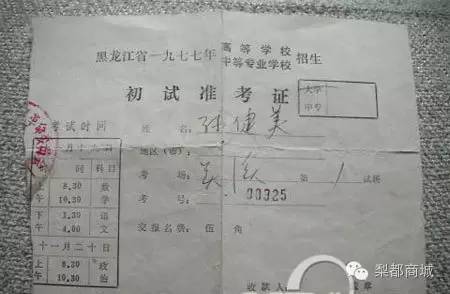 黑龙江省一九七七年 高等学校 中等专业学校 招生
初试准考证
大学
中专
考试时间
姓名：孙健美
地区(市)：
考场： 第1试场
考号： 00325
交报名费：伍角
时间 科目
上午 8.30 10.30 数学
下午 1.30 4.00 语文
十一月二十日
上午 8.30 10.30 政治
收款人
梨都商城